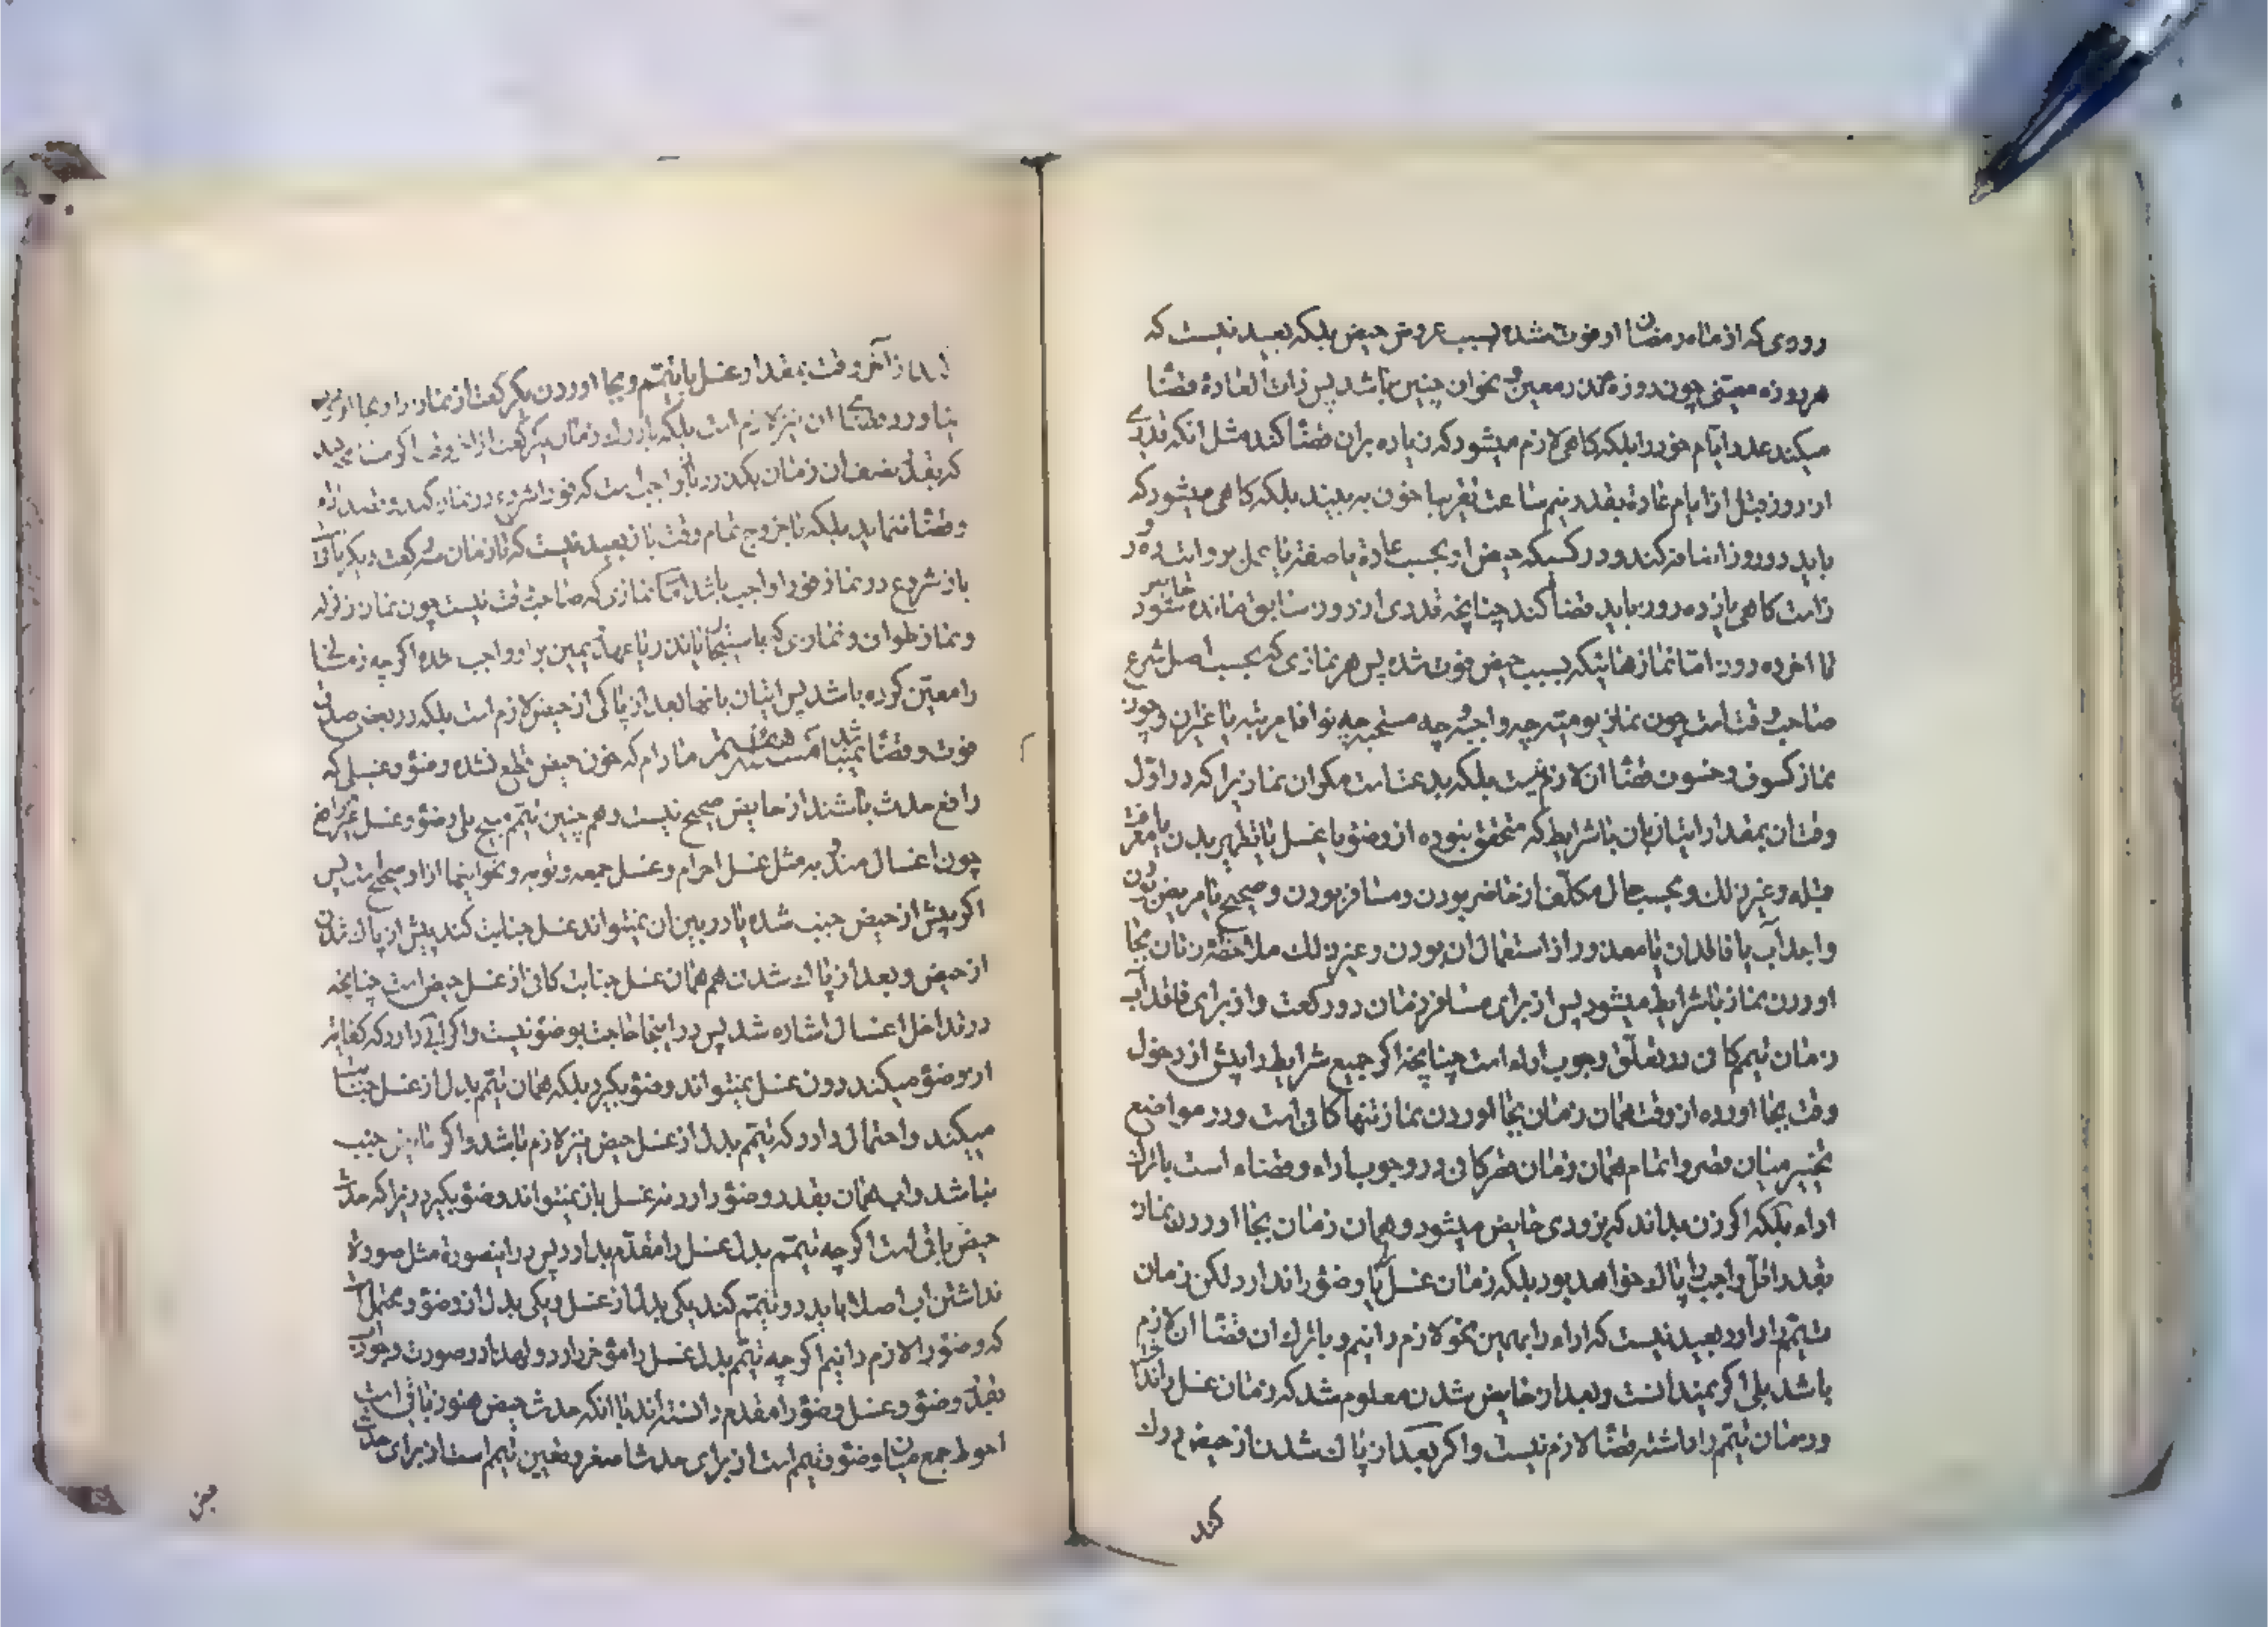 روزه که از ماه رمضان او فوت شده بسبب عروض حیض بلکه بعید نیست که
هر روزه معینی چون روزه نذر معین و نحو ان چنین باشد پس ذات العادة قضا
میکند عدد ایام خود را بلکه گاهی لازم میشود که زیاده بران قضا کند مثل انکه
از روز قبل از ایام عادة بقدر نیم ساعت تقریبا خون به بیند بلکه گاهی میشود که
باید دو روز اضافه کند و در کسیکه حیض او بحسب عادة یا صفة یا عمل بروایت ده روز
است گاهی یازده روز باید قضا کند چنانچه قدری از روز سابق مانده حایض شود
تا اخر ده روز اما نمازهائیکه بسبب حیض فوت شده پس هر نمازی که بحسب اصل شرع
صاحب وقت است چون نماز یومیه چه واجبه چه مستحبه چه نوافل مرتبه یا غیر ان و چون
نماز کسوف و خسوف قضا ان لازم نیست بلکه بدعت است مکر ان نمازیرا که در اول
وقت ان بمقدار اتیان بان با شرایط که متحقق نبوده از وضو یا غسل یا تطهیر بدن یا معرفت
قبله و غیر ذلک و بحسب حال مکلف از حاضر بودن و مسافر بودن و صحیح یا مریض بودن
واجد آب یا فاقد ان یا معذور از استعمال ان بودن و غیر ذلک ملاحظه زمان بجا
اوردن نماز با شرایط میشود پس از برای مسافر زمان دو رکعت و از برای فاقد آب
زمان تیمم کافی در تعلق وجوب اداء است چنانچه اکر جمیع شرایط را پیش از دخول
وقت بجا اورده از وقت همان زمان بجا اوردن نماز تنها کافی است و در مواضع
تخییر میان قصر و اتمام همان زمان قصر کافی در وجوب اداء و قضاء است با ترک
اداء بلکه اکر زن بداند که بزودی حایض میشود و همان زمان بجا اوردن نماز
بقدر اقل واجب را پاک خواهد بود بلکه زمان غسل یا وضو را ندارد لکن زمان
تیمم را دارد بعید نیست که اداء را بهمین نحو لازم دانیم و با ترک ان قضا ان لازم
باشد بلی اکر نمیدانست و بعد از حایض شدن معلوم شد که زمان غسل را نداشته
و زمان تیمم را داشته قضا لازم نیست و اکر بعد از پاک شدن از حیض درک
کند
از آخر وقت بمقدار غسل یا تیمم و بجا اوردن یکرکعت از نماز را و بجا
نیاورد قضا ان نیز لازم است بلکه بادراک زمان یکرکعت از اخر وقت اکر
که بقدر نصف ان زمان بکذرد باز واجب است که فورا شروع در نماز کند و قصد اداء
و قضا ننماید بلکه تا خروج تمام وقت باز بعید نیست که تا زمان سه رکعت دیکر باقی است
باز شروع در نماز فورا واجب باشد اما نمازی که صاحب وقت نیست چون نماز زلزله
و نماز طواف و نمازی که باستیجار یا نذر یا عهد یا یمین بر او واجب شده اکر چه زمانی
را معین کرده باشد پس اتیان بانها بعد از پاکی از حیض لازم است بلکه در بعض صادق
فوت و قضا نمیباشد مادام که خون حیض قطع نشده وضو و غسلی که
رافع حدث باشند از حایض صحیح نیست و هم چنین تیمم مبیح بلی وضو و غسل غیر رافع
چون اغسال مندوبه مثل غسل احرام و غسل جمعه و توبه و نحو اینها از او صحیح است پس
اکر پیش از حیض جنب شده یا در بین ان نمیتواند غسل جنابت کند پیش از پاک شدن
از حیض و بعد از پاک شدن هم همان غسل جنابت کافی از غسل حیض است چنانچه
در تداخل اغسال اشاره شد پس در اینجا حاجت بوضو نیست و اکر آبی دارد که کفایت
از وضو میکند دون غسل نمیتواند وضو بکیرد بلکه همان تیمم بدل از غسل جنابت
میکند و احتمال دارد که تیمم بدل از غسل حیض نیز لازم باشد و اکر حایض جنب
نباشد و اب همان بقدر وضو دارد نه غسل باز نمیتواند وضو بکیرد زیرا که حدث
حیض باقی است اکر چه تیمم بدل غسل را مقدم بدارد پس در اینصورة مثل صورة
نداشتن اب اصلا باید دو تیمم کند یکی بدل از غسل و یکی بدل از وضو و محتمل است
که وضو را لازم دانیم اکر چه تیمم بدل غسل را مؤخر دارد و لهذا در صورت وجود آب
بقدر وضو و غسل وضو را مقدم دانسته‌اند با انکه حدث حیض هنوز باقی است
احوط جمع میان وضو و تیمم است از برای حدث اصغر و تعیین تیمم است از برای حدث
حیض